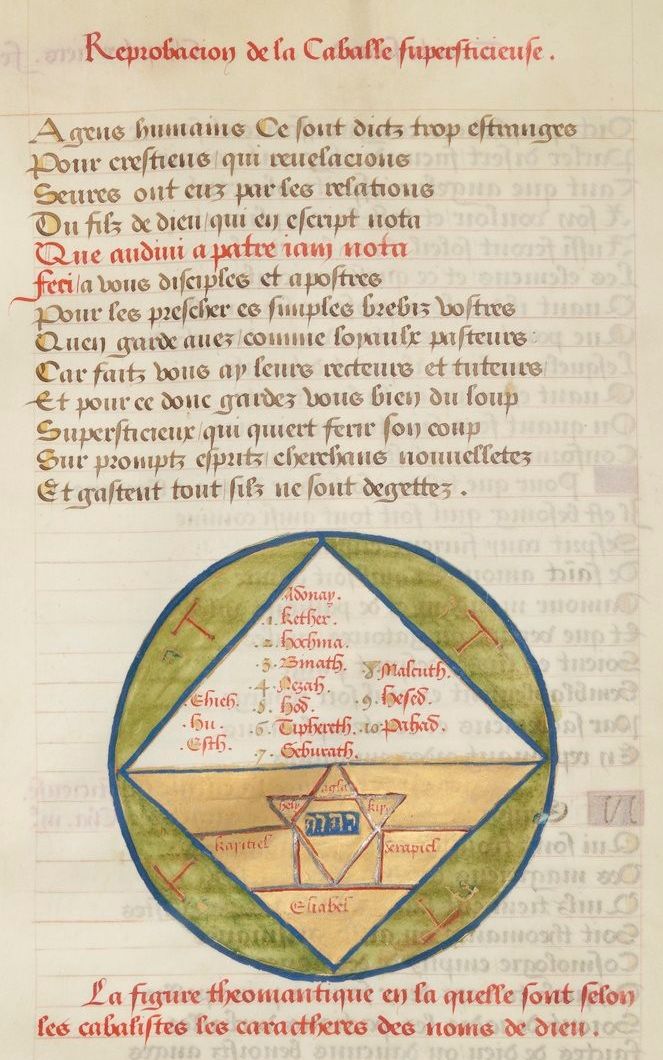 Reprobacion de la Caballe supersticieuse.
A gens humains Ce sont dictz trop estranges
Pour crestiens / qui reuelacions
Seures ont euz par les relations
Du filz de dieu / qui en escript nota
Que audiui a patre iam nota
feci / a vous disciples et apostres
Pour les prescher es simples brebiz vostres
Quen garde auez / comme loyaulx pasteurs
Car faitz vous ay leurs recteurs et tuteurs
Et pour ce donc gardez vous bien du loup
Supersticieux / qui quiert ferir son coup
Sur promptz espritz / cherchans nouuelletez
Et gastent tout / silz ne sont degettez.
T
T
Adonay.
.1. Kether.
.2. Hochma.
.3. Binath.
.4. Nezah.
.5. Hod.
.6. Tiphereth.
.7. Geburath.
8. Malcuth.
9. Hesed.
.10. Pahad.
.Ehieh.
.Hu.
.Esth.
agla
hely
kir
יהוה
karitiel
serapiel
Eliabel
T
La figure theomantique en la quelle sont selon
les cabalistes les caractheres des noms de dieu.